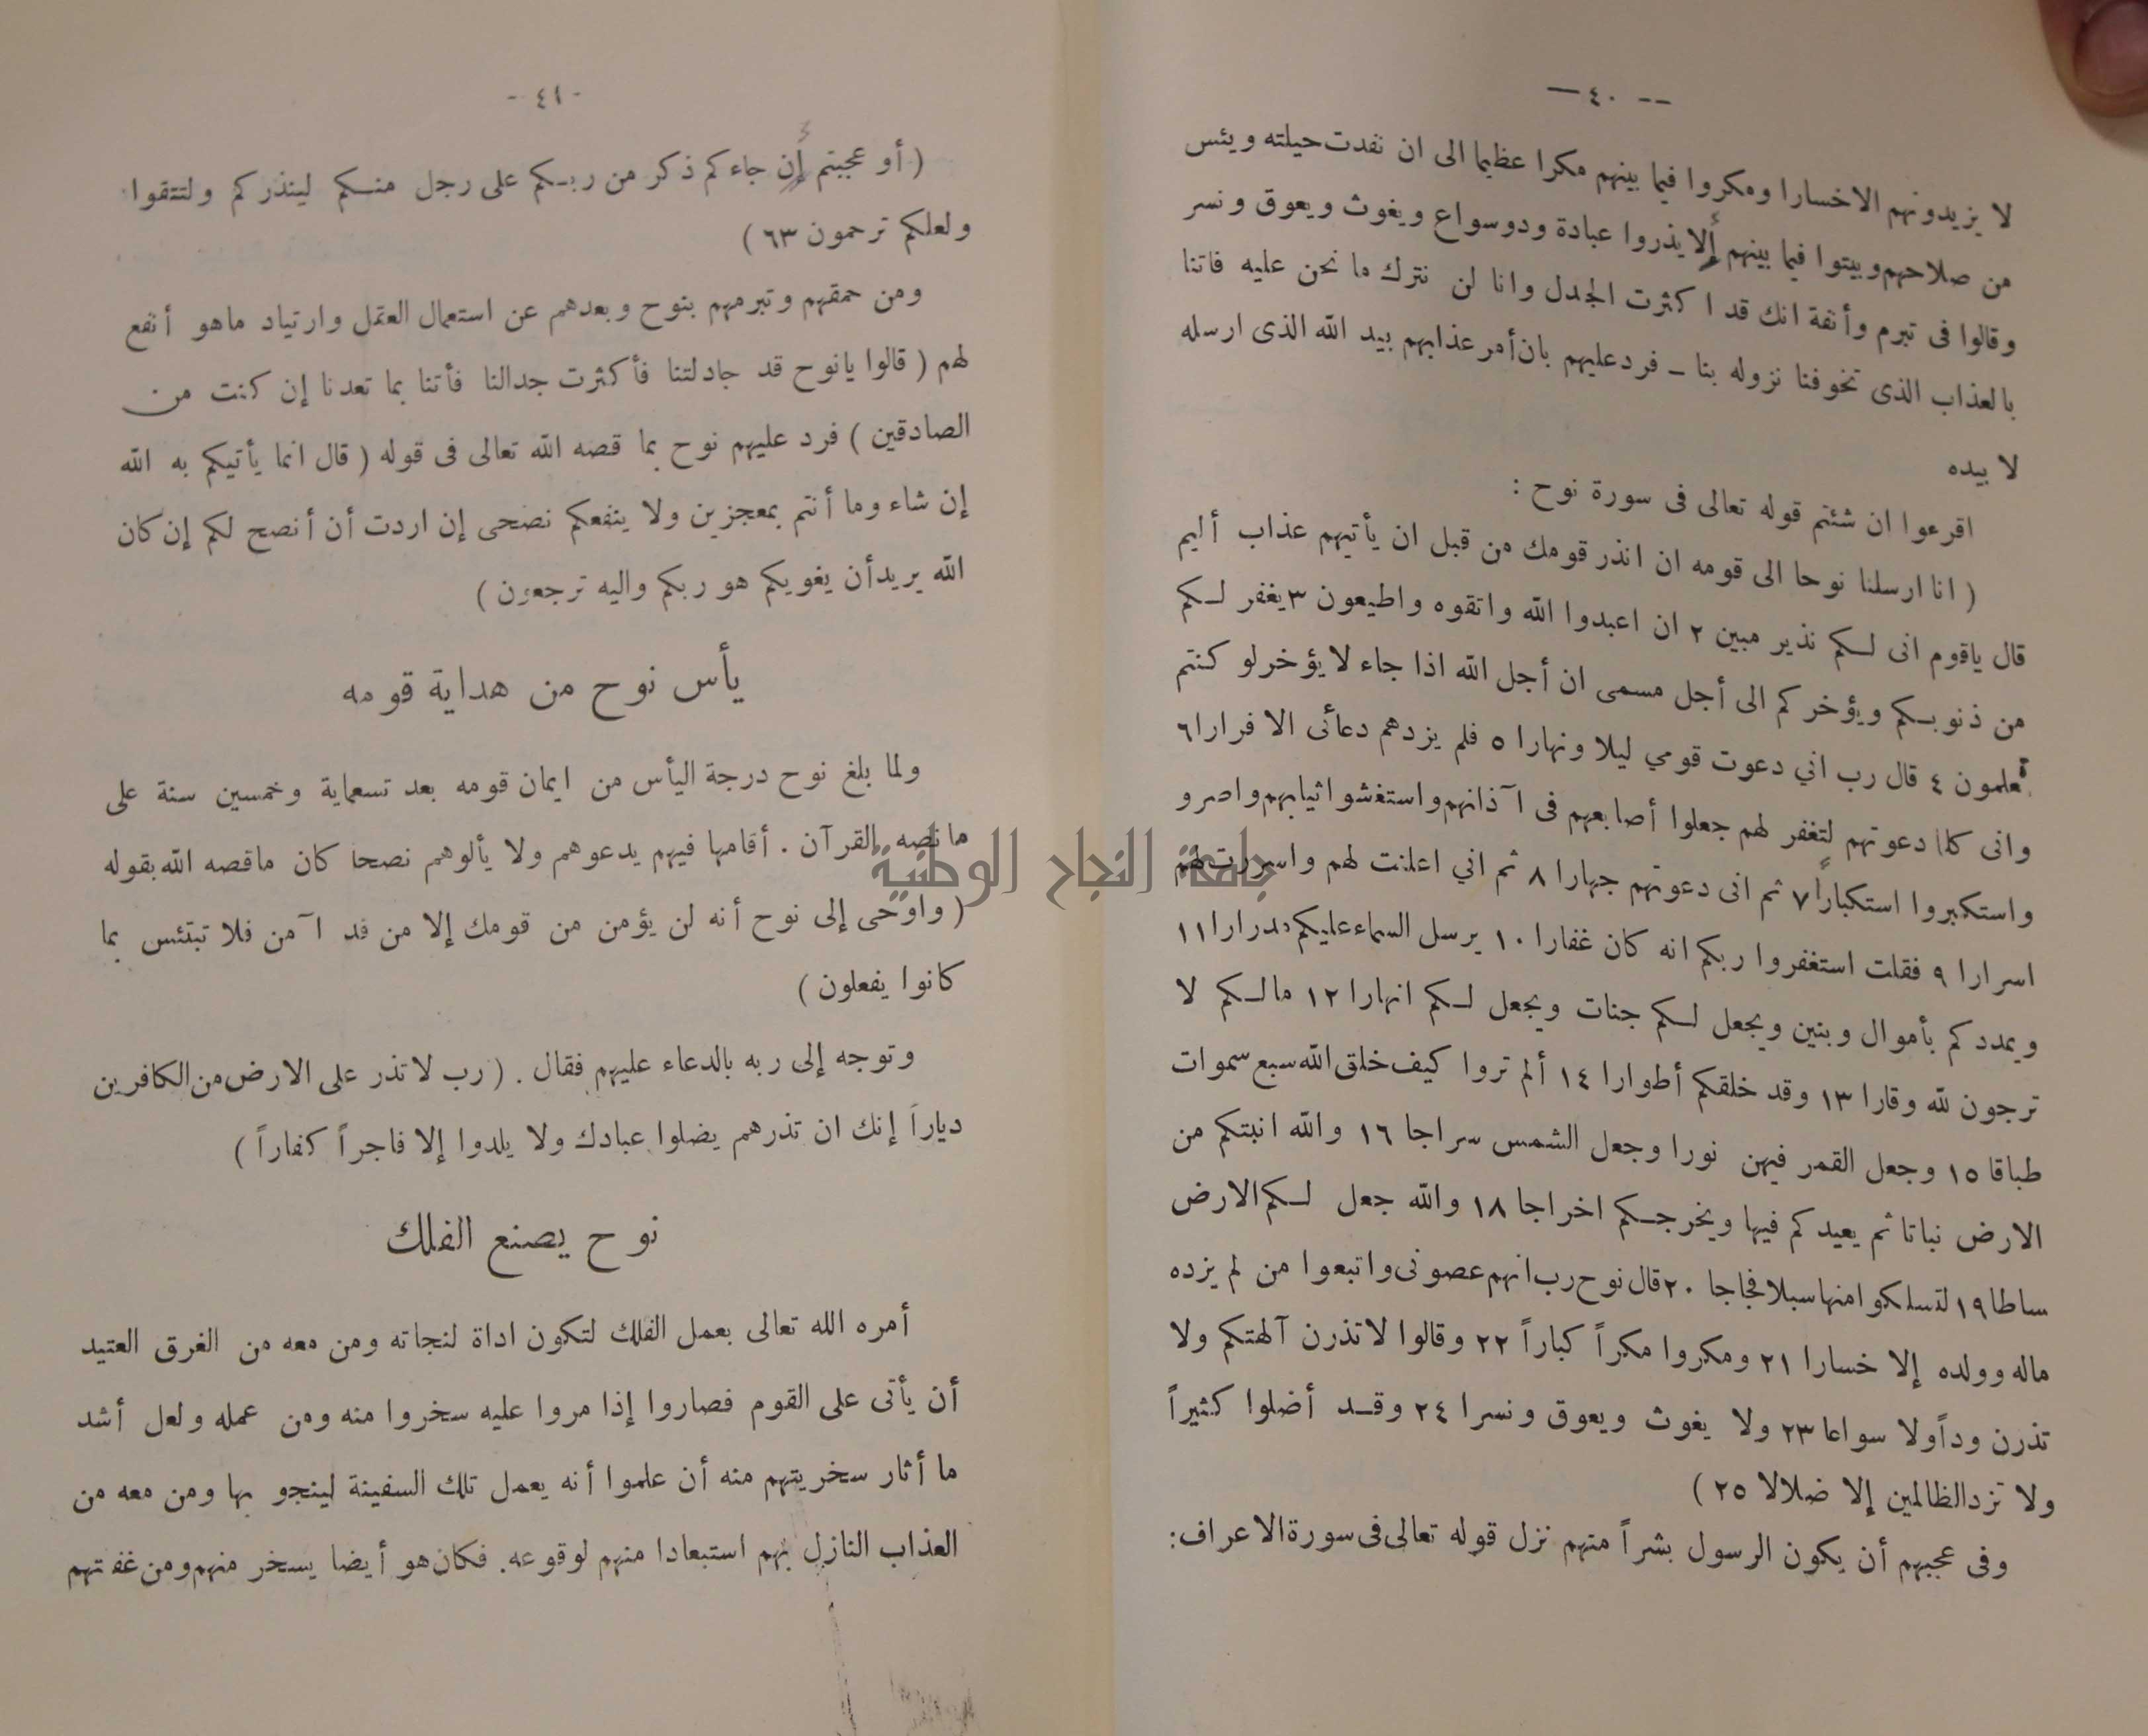 -- ٤٠ —
لا يزيدونهم الاخسارا ومكروا فيما بينهم مكرا عظيما الى ان نفدت حيلته ويئس
من صلاحهم وبيتوا فيما بينهم ألا يذروا عبادة ودوسواع ويغوث ويعوق ونسر
وقالوا فى تبرم وأنفة انك قد اكثرت الجدل وانا لن نترك ما نحن عليه فاتنا
بالعذاب الذى تخوفنا نزوله بنا – فرد عليهم بان أمر عذابهم بيد الله الذى ارسله
لا بيده
اقرءوا ان شئتم قوله تعالى فى سورة نوح :
( انا ارسلنا نوحا الى قومه ان انذر قومك من قبل ان يأتيهم عذاب أليم
قال ياقوم انى لكم نذير مبين ٢ ان اعبدوا الله واتقوه واطيعون ٣ يغفر لكم
من ذنوبكم ويؤخركم الى أجل مسمى ان أجل الله اذا جاء لا يؤخر لو كنتم
تعلمون ٤ قال رب اني دعوت قومي ليلا ونهارا ٥ فلم يزدهم دعائى الا فرارا ٦
وانى كلما دعوتهم لتغفر لهم جعلوا أصابعهم فى آذانهم واستغشوا ثيابهم واصرو
واستكبروا استكباراً ٧ ثم انى دعوتهم جهارا ٨ ثم اني اعلنت لهم واسررت لهم
اسرارا ٩ فقلت استغفروا ربكم انه كان غفارا ١٠ يرسل السماء عليكم مدرارا ١١
ويمددكم بأموال وبنين ويجعل لكم جنات ويجعل لكم انهارا ١٢ مالكم لا
ترجون لله وقارا ١٣ وقد خلقكم أطوارا ١٤ ألم تروا كيف خلق الله سبع سموات
طباقا ١٥ وجعل القمر فيهن نورا وجعل الشمس سراجا ١٦ والله انبتكم من
الارض نباتا ثم يعيدكم فيها ويخرجكم اخراجا ١٨ والله جعل لكم الارض
ساطا ١٩ لتسلكوا منها سبلا فجاجا ٢٠ قال نوح رب انهم عصونى واتبعوا من لم يزده
ماله وولده إلا خسارا ٢١ ومكروا مكراً كباراً ٢٢ وقالوا لا تذرن آلهتكم ولا
تذرن وداً ولا سواعا ٢٣ ولا يغوث ويعوق ونسرا ٢٤ وقد أضلوا كثيراً
ولا تزد الظالمين إلا ضلالا ٢٥ )
وفى عجبهم أن يكون الرسول بشراً منهم نزل قوله تعالى فى سورة الاعراف :
- ٤١ -
( أو عجبتم أن جاءكم ذكر من ربكم على رجل منكم لينذركم ولتتقوا
ولعلكم ترحمون ٦٣ )
ومن حمقهم وتبرمهم بنوح وبعدهم عن استعمال العقل وارتياد ماهو أنفع
لهم ( قالوا يانوح قد جادلتنا فأكثرت جدالنا فأتنا بما تعدنا إن كنت من
الصادقين ) فرد عليهم نوح بما قصه الله تعالى فى قوله ( قال انما يأتيكم به الله
إن شاء وما أنتم بمعجزين ولا ينفعكم نصحى إن اردت أن أنصح لكم إن كان
الله يريد أن يغويكم هو ربكم واليه ترجعون )
يأس نوح من هداية قومه
ولما بلغ نوح درجة اليأس من ايمان قومه بعد تسعماية وخمسين سنة على
مانصه القرآن . أقامها فيهم يدعوهم ولا يألوهم نصحا كان ماقصه الله بقوله
( واوحى إلى نوح أنه لن يؤمن من قومك إلا من قد آمن فلا تبتئس بما
كانوا يفعلون )
وتوجه إلى ربه بالدعاء عليهم فقال . ( رب لا تذر على الارض من الكافرين
دياراً إنك ان تذرهم يضلوا عبادك ولا يلدوا إلا فاجراً كفاراً )
نوح يصنع الفلك
أمره الله تعالى بعمل الفلك لتكون اداة لنجاته ومن معه من الغرق العتيد
أن يأتى على القوم فصاروا إذا مروا عليه سخروا منه ومن عمله ولعل أشد
ما أثار سخريتهم منه أن علموا أنه يعمل تلك السفينة لينجو بها ومن معه من
العذاب النازل بهم استبعادا منهم لوقوعه. فكان هو أيضا يسخر منهم ومن غفلتهم
جامعة النجاح الوطنية